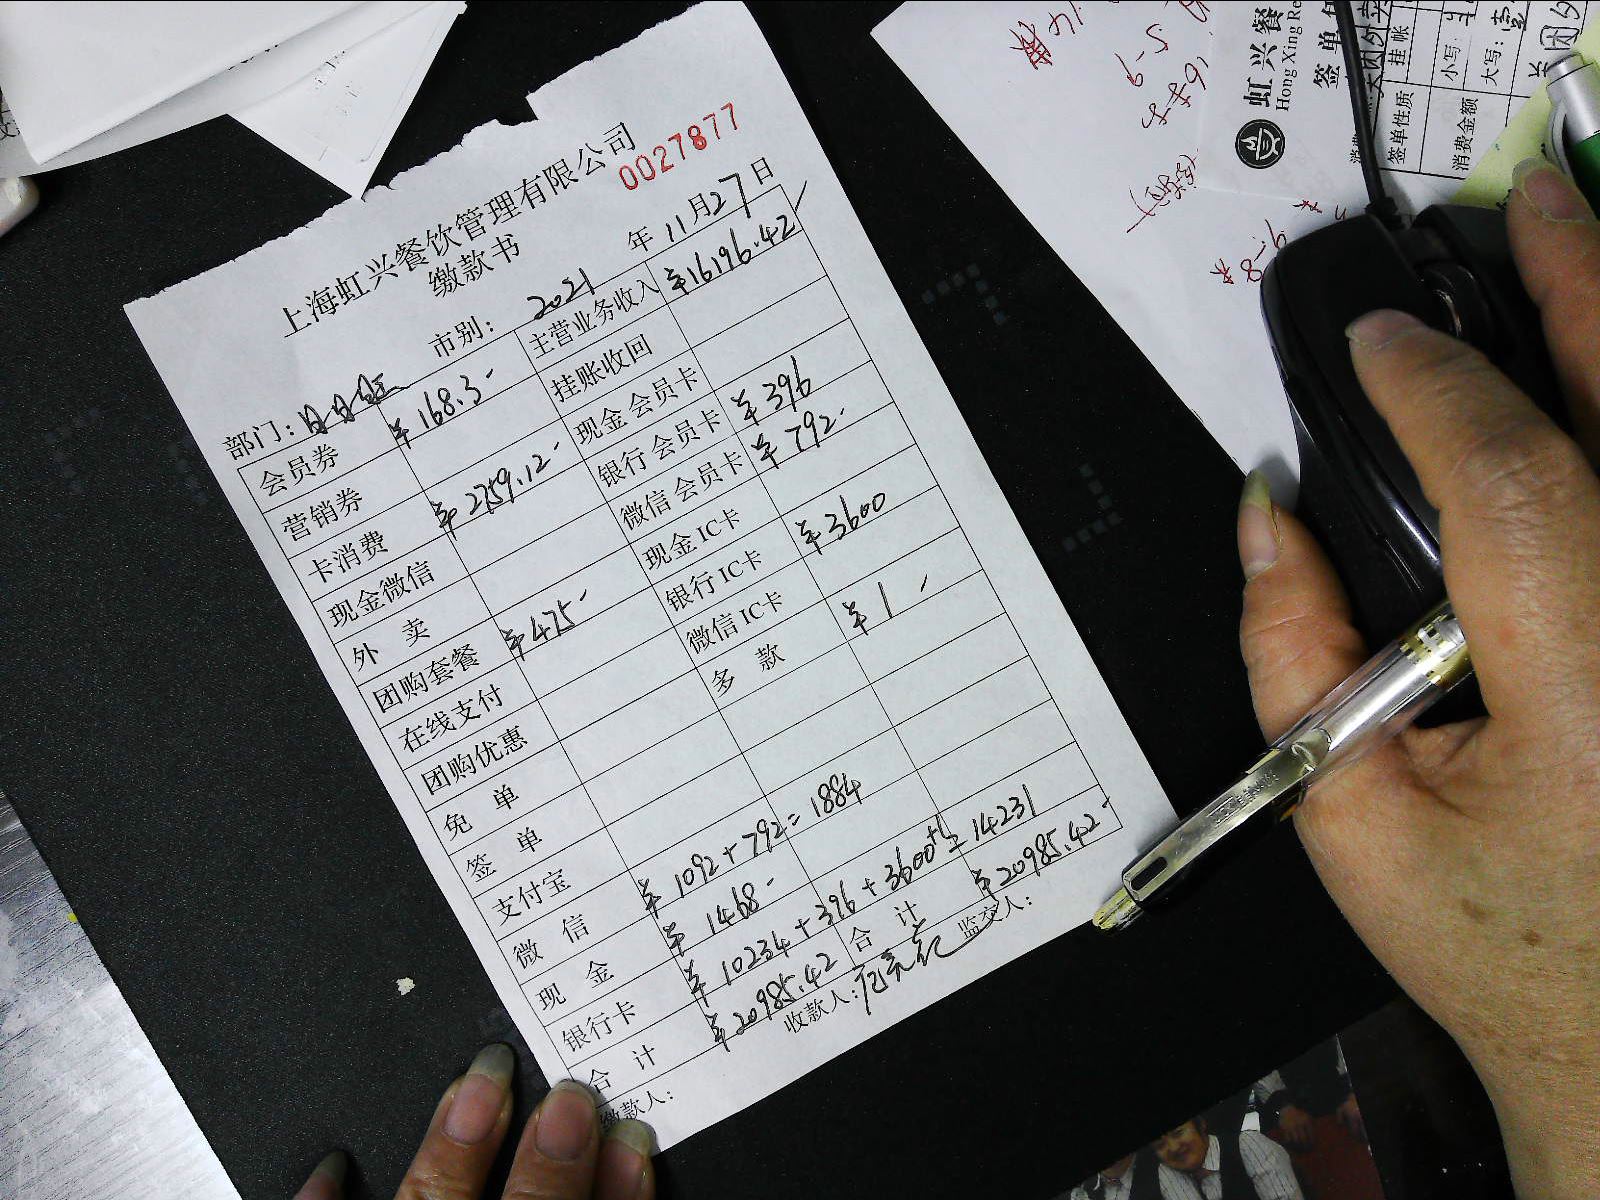 上海虹兴餐饮管理有限公司
0027877
缴款书
部门：日日旺 市别： 2021 年 11 月 27 日
会员券 ¥168.3- 主营业务收入 ¥16196.42
营销券 挂账收回
卡消费 ¥2759.12- 现金 会员卡
现金微信 银行 会员卡 ¥396
外 卖 微信 会员卡 ¥792-
团购套餐 ¥475- 现金 IC卡
在线支付 银行 IC卡 ¥3600
团购优惠 微信 IC卡
免 单 多 款 ¥1-
签 单
支付宝
微 信 ¥1092+792=1884
现 金 ¥1468-
银行卡 ¥10234+396+3600+1=14231
合 计 ¥20985.42 合 计 ¥20985.42-
缴款人： 收款人： 监交人：
虹兴餐
Hong Xing Re
签单
签单性质 挂帐
消费金额 小写：
大写：
6-5